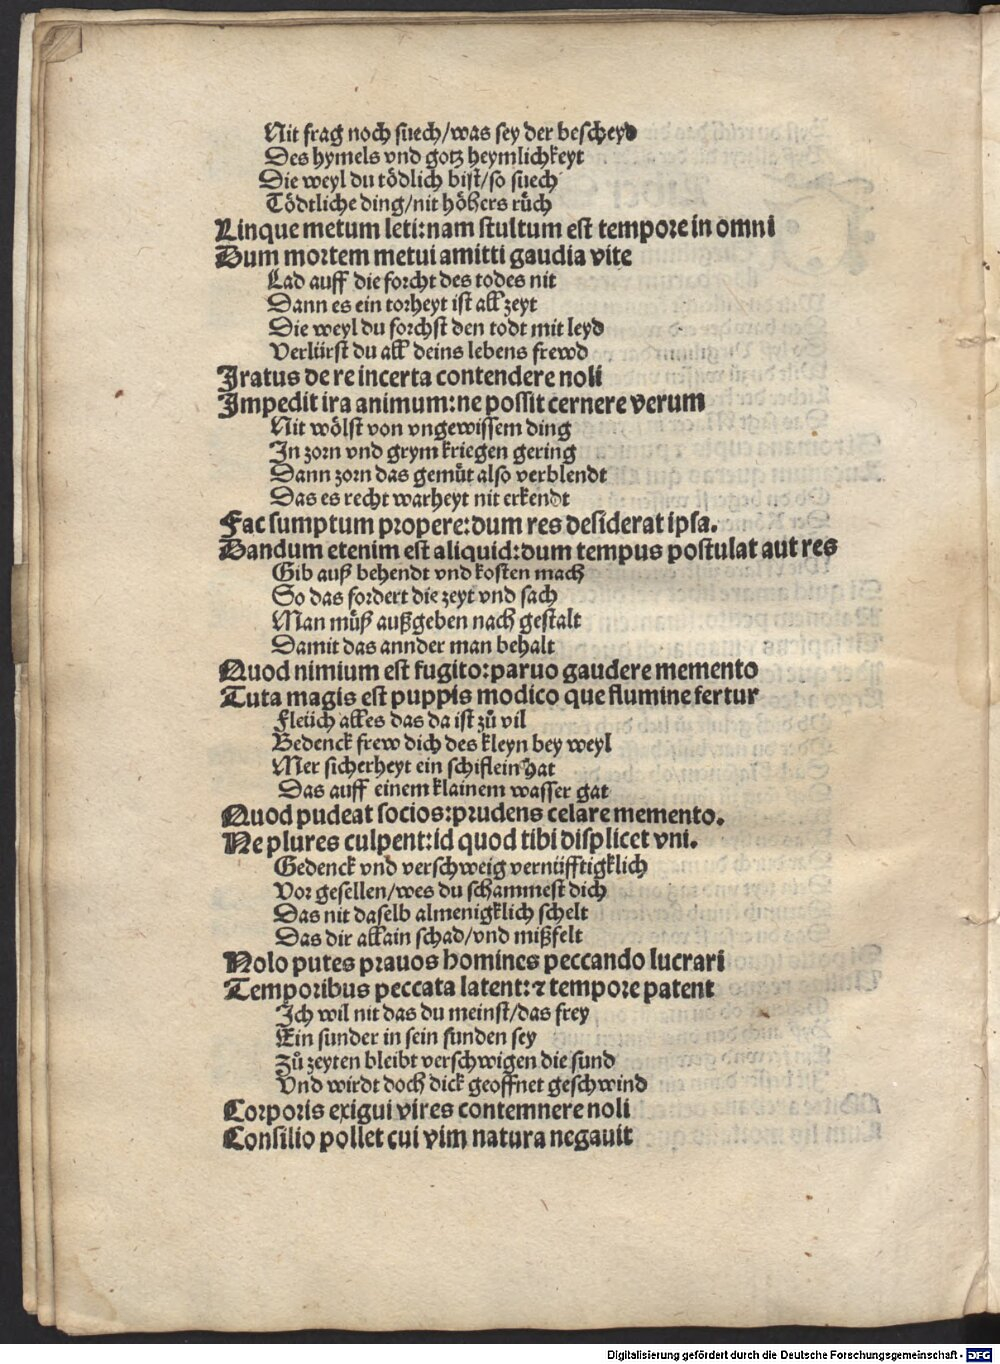 Nit frag noch suech/was sey der bescheyd
Des hymels vnd gotz heymlichkeyt
Die weyl du tödlich bist/so suech
Tödtliche ding/nit höhers růch
Linque metum leti:nam stultum est tempore in omni
Dum mortem metui amitti gaudia vite
Lad auff die forcht des todes nit
Dann es ein torheyt ist all zeyt
Die weyl du forchst den todt mit leyd
Verlürst du all deins lebens frewd
Iratus de re incerta contendere noli
Impedit ira animum:ne possit cernere verum
Nit wölst von vngewissem ding
In zorn vnd grym kriegen gering
Dann zorn das gemüt also verblendt
Das es recht warheyt nit erkendt
Fac sumptum propere:dum res desiderat ipsa.
Dandum etenim est aliquid:dum tempus postulat aut res
Gib auß behendt vnd kosten mach
So das fordert die zeyt vnd sach
Man müß außgeben nach gestalt
Damit das annder man behalt
Quod nimium est fugito:paruo gaudere memento
Tuta magis est puppis modico que flumine fertur
Fleüch alles das da ist zů vil
Bedenck frew dich des kleyn bey weyl
Mer sicherheyt ein schiflein hat
Das auff einem klainem wasser gat
Quod pudeat socios:prudens celare memento.
Ne plures culpent:id quod tibi displicet vni.
Gedenck vnd verschweig vernüfftigklich
Vor gesellen/wes du schammest dich
Das nit daselb almenigklich schelt
Das dir allain schad/vnd mißfelt
Nolo putes prauos homines peccando lucrari
Temporibus peccata latent:⁊ tempore patent
Ich wil nit das du meinst/das frey
Ein sunder in sein sunden sey
Zů zeyten bleibt verschwigen die sund
Vnd wirdt doch dick geoffnet geschwind
Corporis exigui vires contemnere noli
Consilio pollet cui vim natura negauit
Digitalisierung gefördert durch die Deutsche Forschungsgemeinschaft - DFG